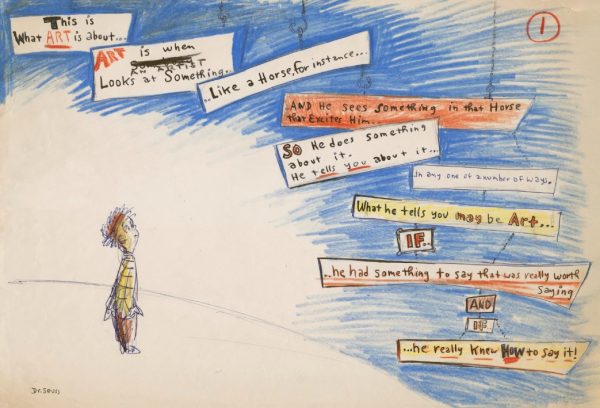 1
This is
What ART is about...
ART is when
AN ARTIST
Looks at Something.
..Like a Horse, for instance...
AND He sees something in that Horse
that Excites Him...
SO He does something
about it.
He tells you about it...
In any one of a number of ways.
What he tells you may be Art...
IF..
...he had something to say that was really worth
saying
AND
IF
...he really knew HOW to say it!
Dr. Seuss